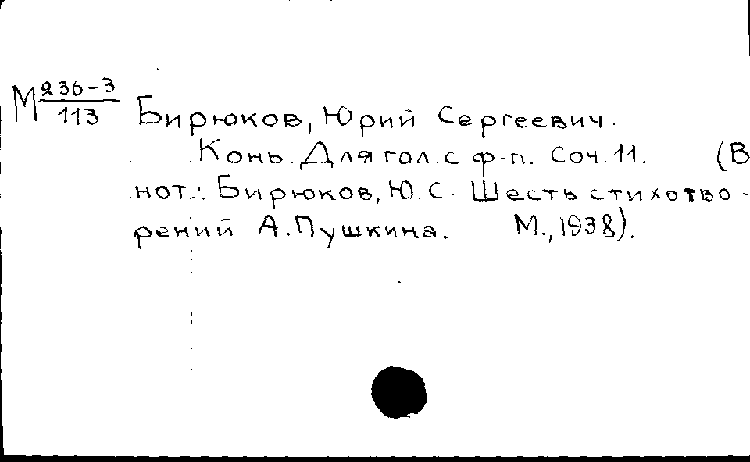 М 236-3
113
Бирюков, Юрий Сергеевич.
Конь. Для гол. с ф-п. Соч. 11. (В
нот.: Бирюков, Ю. С. Шесть стихотво-
рений А. Пушкина. М., 1938).